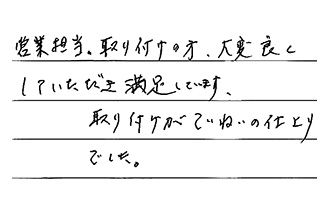 営業担当、取り付けの方、大変良く
していただき満足しています、
取り付けがていねいの仕上り
でした。